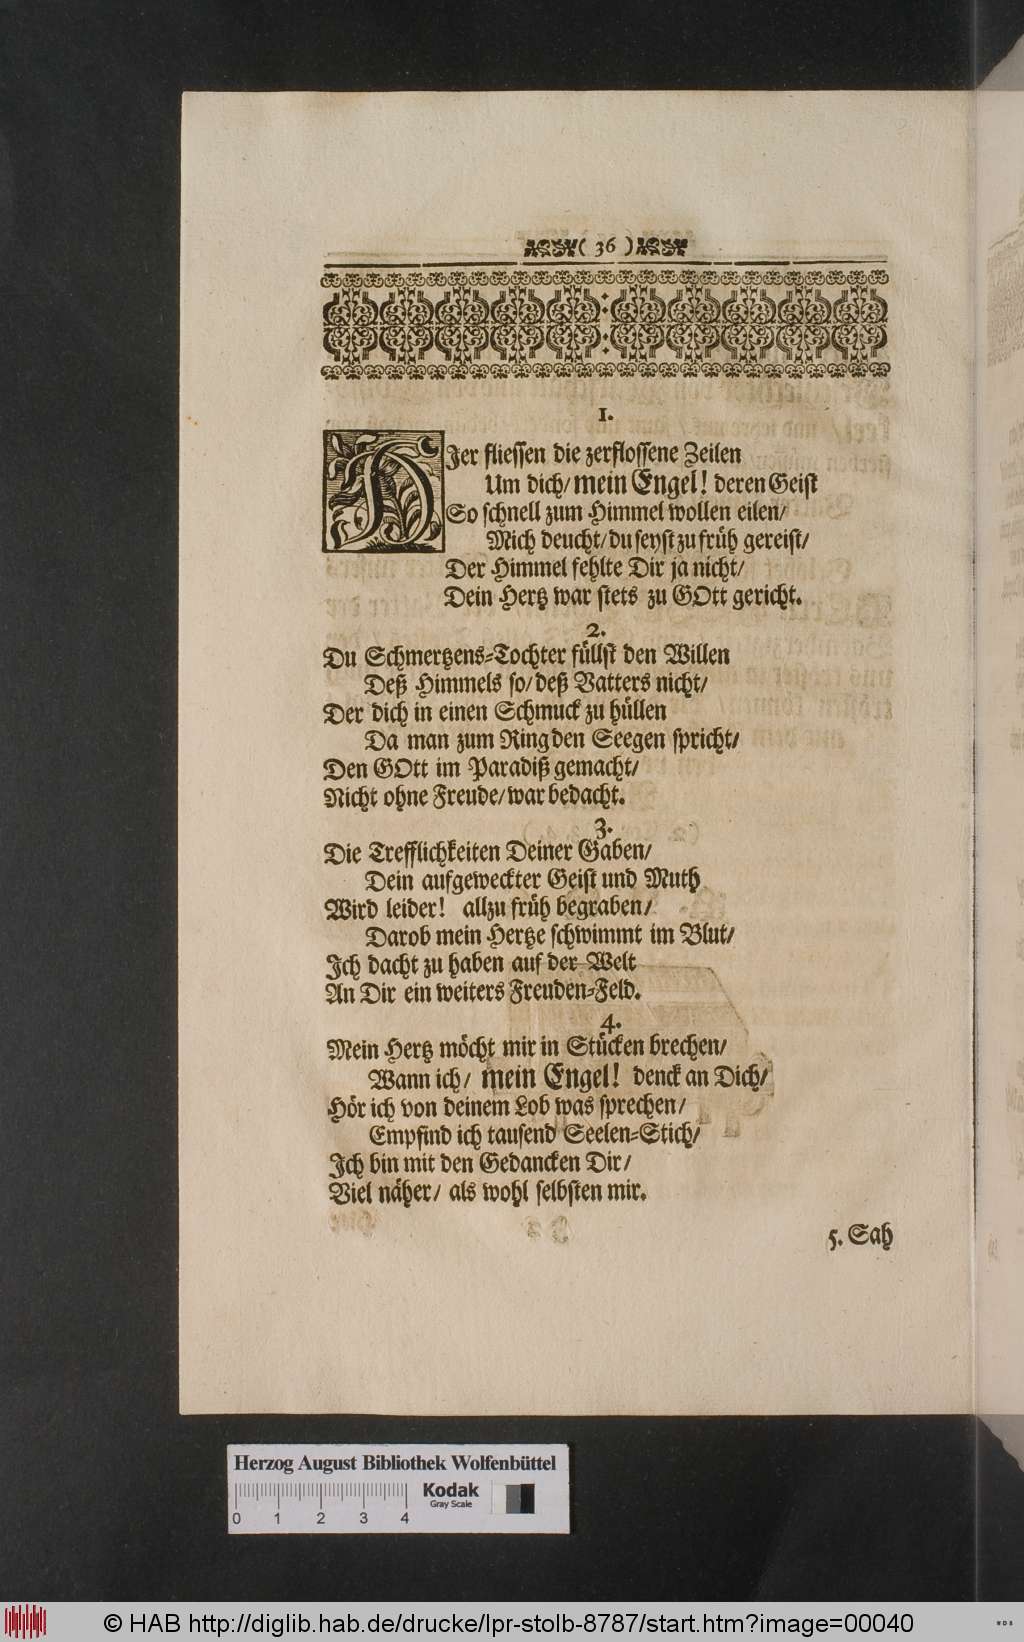 ( 36 )
1.
HJer fliessen die zerflossene Zeilen
Um dich/ mein Engel! deren Geist
So schnell zum Himmel wollen eilen/
Mich deucht/ du seyst zu früh gereist/
Der Himmel fehlte Dir ja nicht/
Dein Hertz war stets zu GOtt gericht.
2.
Du Schmertzens-Tochter füllst den Willen
Deß Himmels so/ deß Vatters nicht/
Der dich in einen Schmuck zu hüllen
Da man zum Ring den Seegen spricht/
Den GOtt im Paradiß gemacht/
Nicht ohne Freude/ war bedacht.
3.
Die Trefflichkeiten Deiner Gaben/
Dein aufgeweckter Geist und Muth
Wird leider! allzu früh begraben/
Darob mein Hertze schwimmt im Blut/
Jch dacht zu haben auf der Welt
An Dir ein weiters Freuden-Feld.
4.
Mein Hertz möcht mir in Stücken brechen/
Wann ich/ mein Engel! denck an Dich/
Hör ich von deinem Lob was sprechen/
Empfind ich tausend Seelen-Stich/
Jch bin mit den Gedancken Dir/
Viel näher/ als wohl selbsten mir.
5. Sah
Herzog August Bibliothek Wolfenbüttel
0 1 2 3 4
Kodak
Gray Scale
© HAB http://diglib.hab.de/drucke/lpr-stolb-8787/start.htm?image=00040